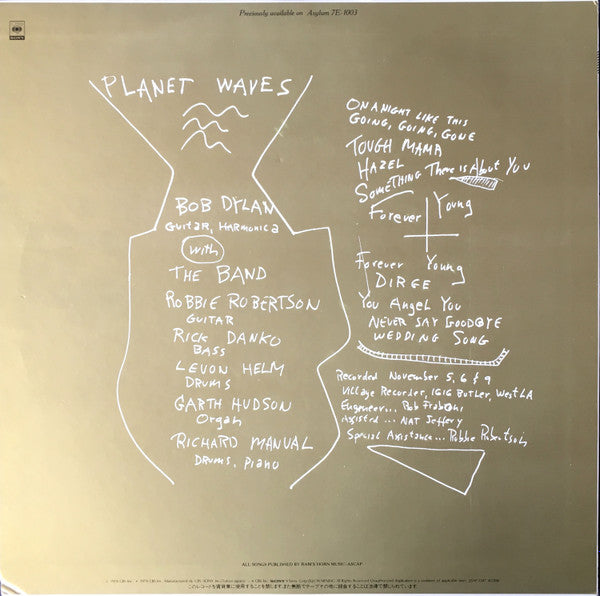 Previously available on Asylum 7E-1003
CBS
SONY
PLANET WAVES
BOB DYLAN
GUITAR, HARMONICA
with
THE BAND
ROBBIE ROBERTSON
GUITAR
RICK DANKO
BASS
LEVON HELM
DRUMS
GARTH HUDSON
Organ
RICHARD MANUAL
DRUMS, PIANO
ON A NIGHT LIKE THIS
GOING, GOING, GONE
TOUGH MAMA
HAZEL
SOMETHING There is About You
Forever Young
Forever Young
DIRGE
You Angel You
NEVER SAY GOODBYE
WEDDING SONG
Recorded November 5, 6 & 9
Village Recorder, 1616 Butler, West LA
Engineer... Rob Fraboni
Assisted... NAT Jeffery
Special Assistance... Robbie Robertson
ALL SONGS PUBLISHED BY RAM'S HORN MUSIC-ASCAP
このレコードを賃貸業に使用することを禁じます。また無断でテープその他に録音することは法律で禁じられています